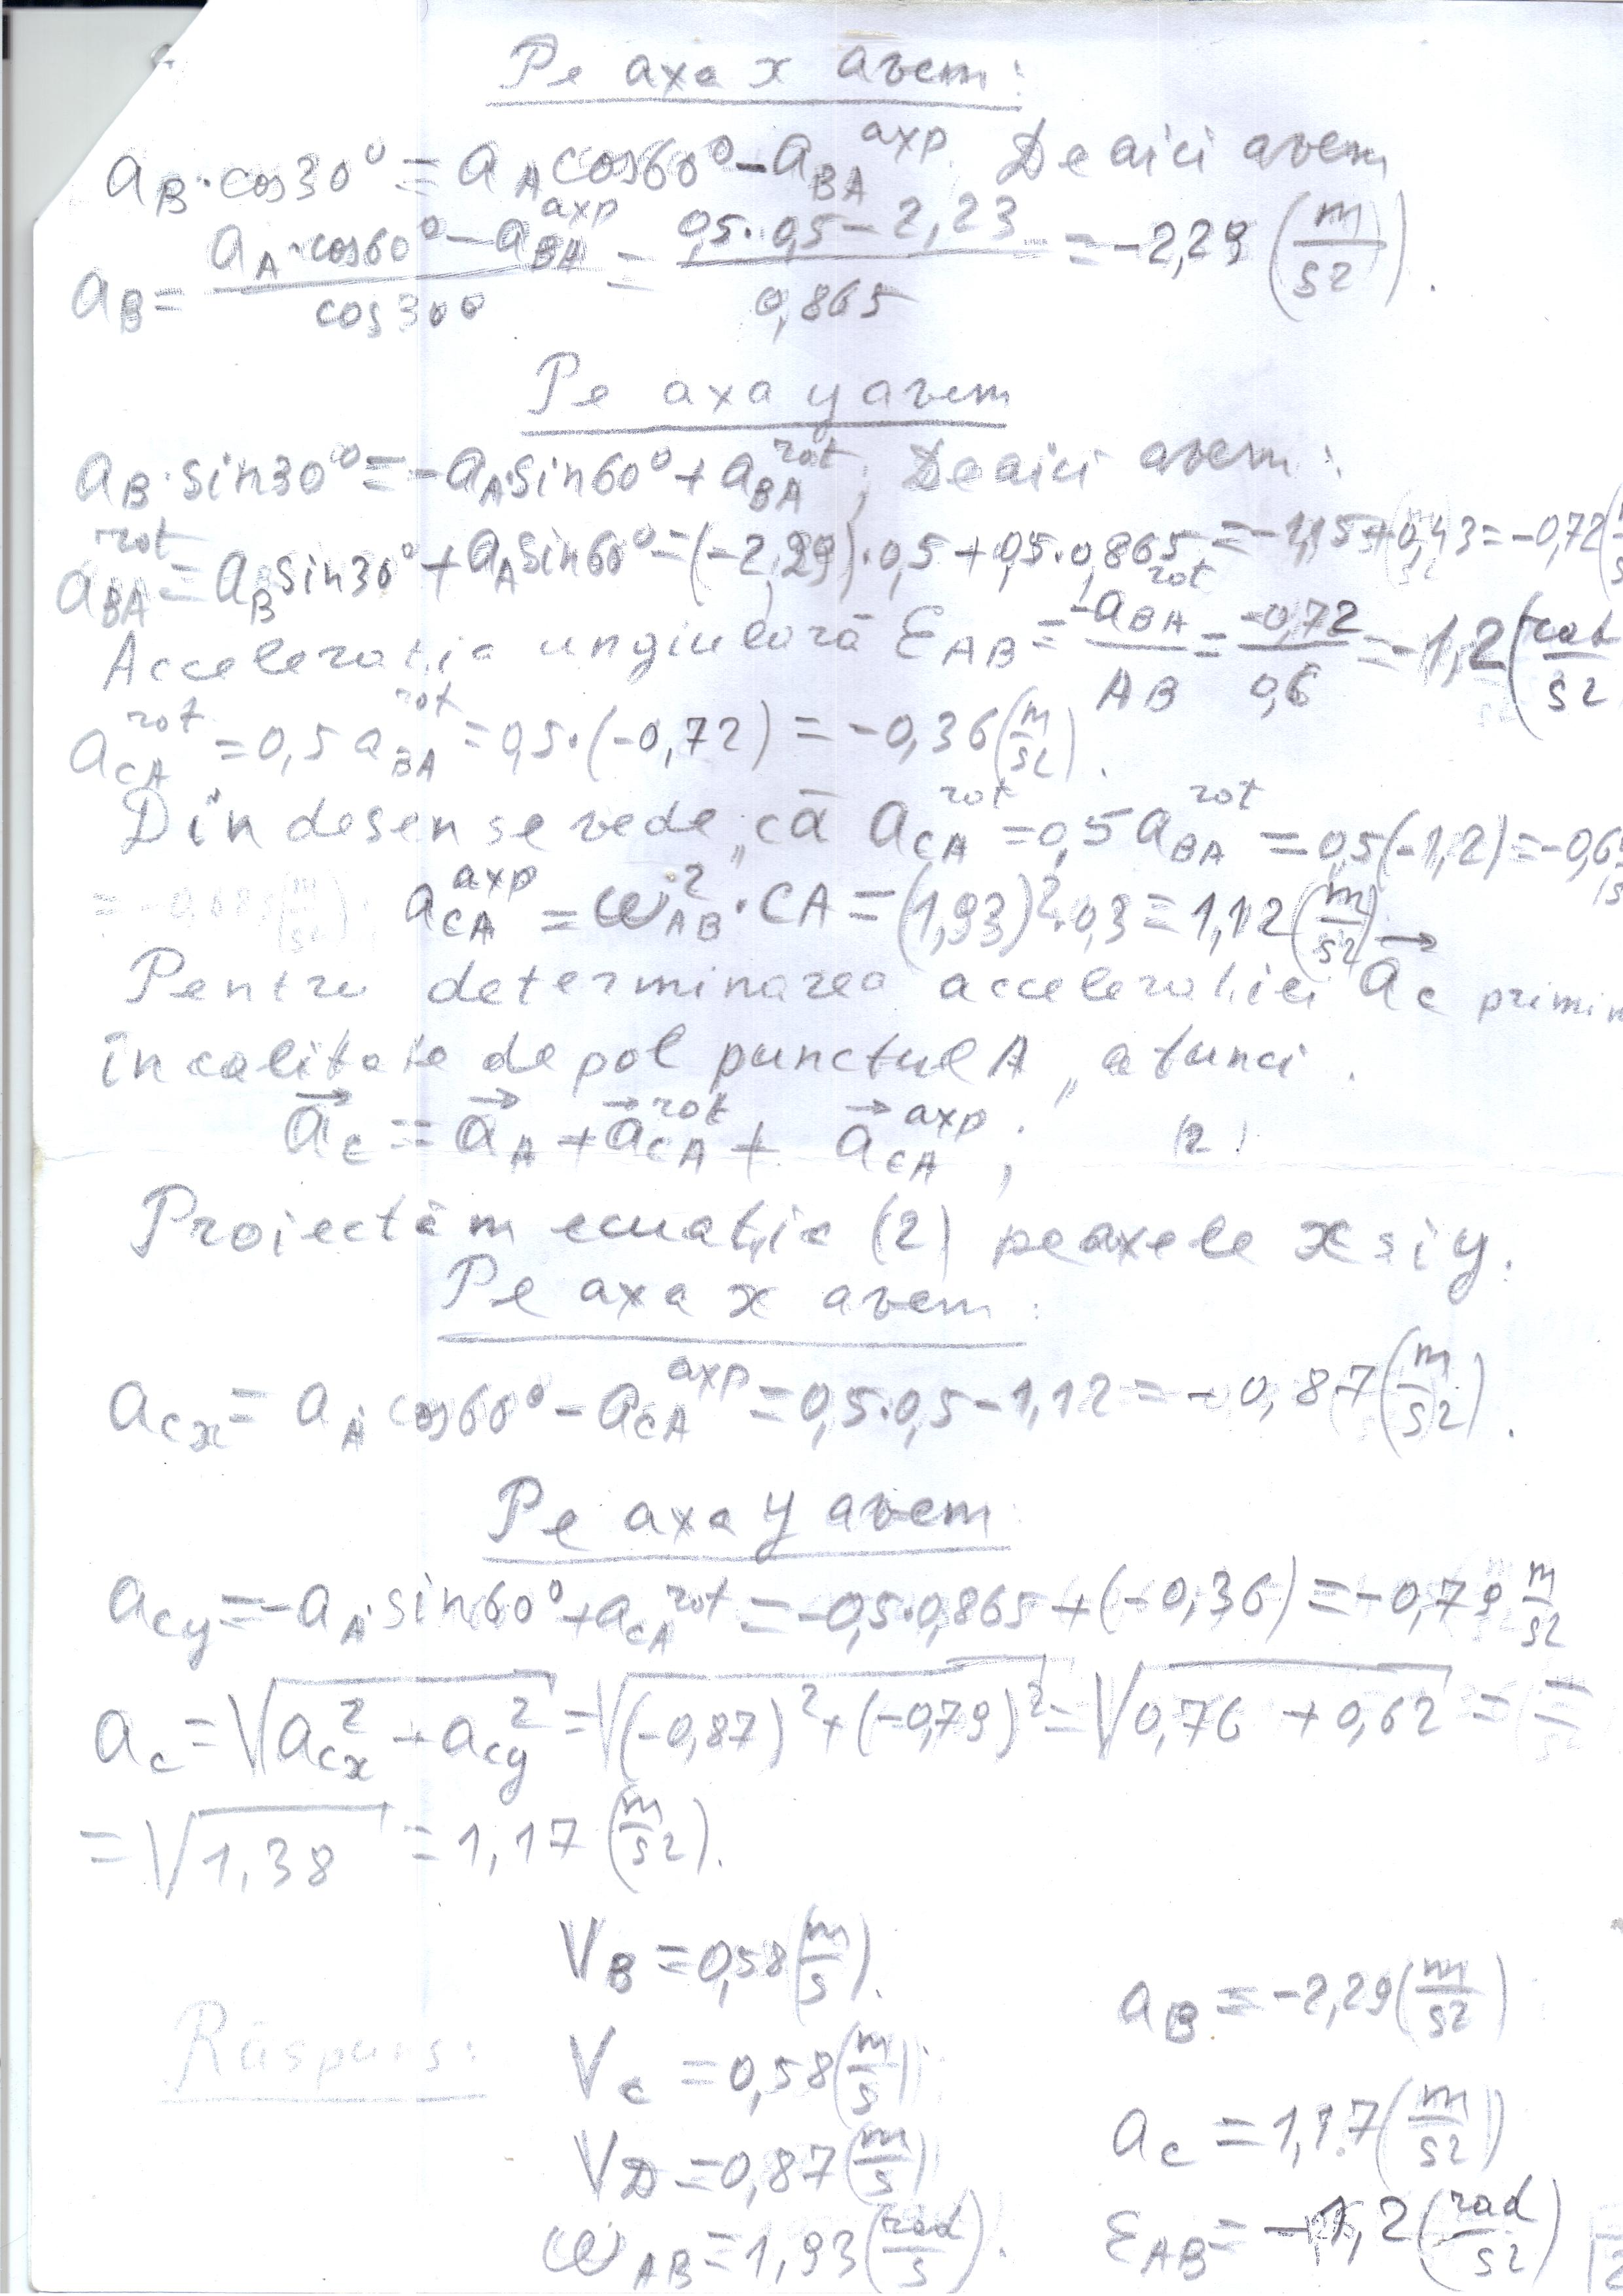 Pe axa x avem:
a_B·cos30° = a_A cos60° - a_BA^axp. De aici avem
a_B = (a_A·cos60° - a_BA^axp)/(cos30°) = (0,5·0,5 - 2,23)/(0,865) = -2,29 (m/s2).
Pe axa y avem
a_B·sin30° = -a_A·sin60° + a_BA^rot; De aici avem:
a_BA^rot = a_B sin30° + a_A sin60° = (-2,29)·0,5 + 0,5·0,865 = -1,15 + 0,43 = -0,72 (
Accelerația unghiulară Ɛ_AB = -a_BA^rot/AB = -0,72/0,6 = -1,2 (rad/s2
a_CA^rot = 0,5 a_BA^rot = 0,5·(-0,72) = -0,36 (m/s2).
Din desen se vede, că a_CA^rot = 0,5 a_BA^rot = 0,5(-1,2) = -0,6
a_CA^axp = ω_AB^2·CA = (1,93)^2·0,3 = 1,12 (m/s2)
Pentru determinarea accelerației a⃗_c primim
în calitate de pol punctul A, atunci.
a⃗_c = a⃗_A + a⃗_CA^rot + a⃗_CA^axp; (2)
Proiectăm ecuația (2) pe axele x si y.
Pe axa x avem:
a_cx = a_A cos60° - a_CA^axp = 0,5·0,5 - 1,12 = -0,87 (m/s2).
Pe axa y avem:
a_cy = -a_A·sin60° + a_CA^rot = -0,5·0,865 + (-0,36) = -0,79 m/s2
a_c = √(a_cx^2 + a_cy^2) = √((-0,87)^2 + (-0,79)^2) = √(0,76 + 0,62) =
= √1,38 = 1,17 (m/s2).
V_B = 0,58 (m/s). a_B = -2,29 (m/s2)
Răspuns: V_c = 0,58 (m/s); a_c = 1,17 (m/s2)
V_D = 0,87 (m/s)
ω_AB = 1,93 (rad/s). Ɛ_AB = -1,2 (rad/s2)